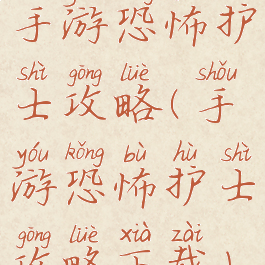 手游恐怖护
shì gōng lüè shǒu
士攻略(手
yóu kǒng bù hù shì
游恐怖护士
gōng lüè xià zài
攻略下载)